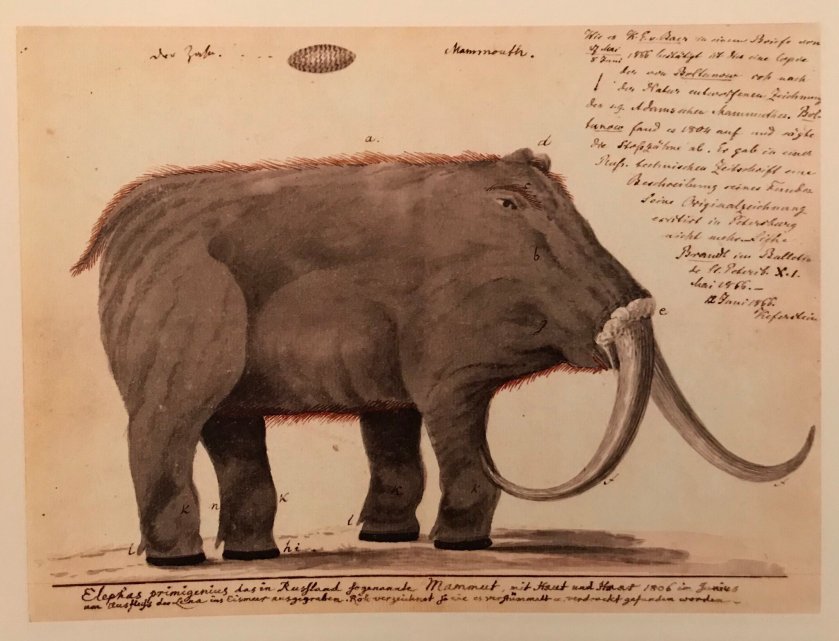 Der Zahn. . . . .
Mammouth.
Wie es K. E. v. Baer in einem Briefe vom
27 Mai
8 Juni 1866 bestätigt ist dies eine Copie
der von Boltunow roh nach
der Natur entworfenen Zeichnung
des sg. Adamsschen Mammuthes. Bol-
tunow fand es 1804 auf und sägte
die Stoßzähne ab. Er gab in einer
Russ. technischen Zeitschrift eine
Beschreibung seines Fundes
Seine Originalzeichnung
existirt in Petersburg
nicht mehr. Siehe
Brandt im Bulletin
de St. Petersb. X. 1.
Mai 1866.—
12 Juni 1866.
Keferstein
a.
d
c
b
e
x
x
k
n
k
k
k
l
l
h i
Elephas primigenius das in Russland sogenannte Mammut, mit Haut und Haar 1806 im Junius
am Ausfluss der Lena ins Eismeer ausgegraben. Roh verzeichnet so wie es verstümmelt u. verdreckt gefunden worden—